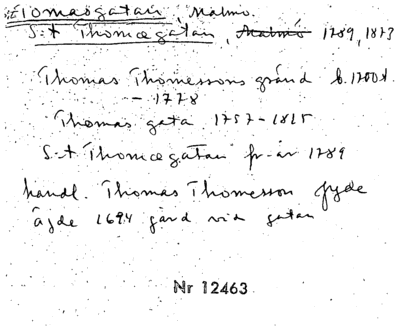 Tomasgatan, Malmö.
S:t Thomægatan, Malmö 1789, 1873
Thomas Thomessons gränd b. 1700t.
- 1778
Thomas gata 1757-1815
S:t Thomægatan fr. år 1789
handl. Thomas Thomesson
ägde 1694 gård vid gatan
Nr 12463